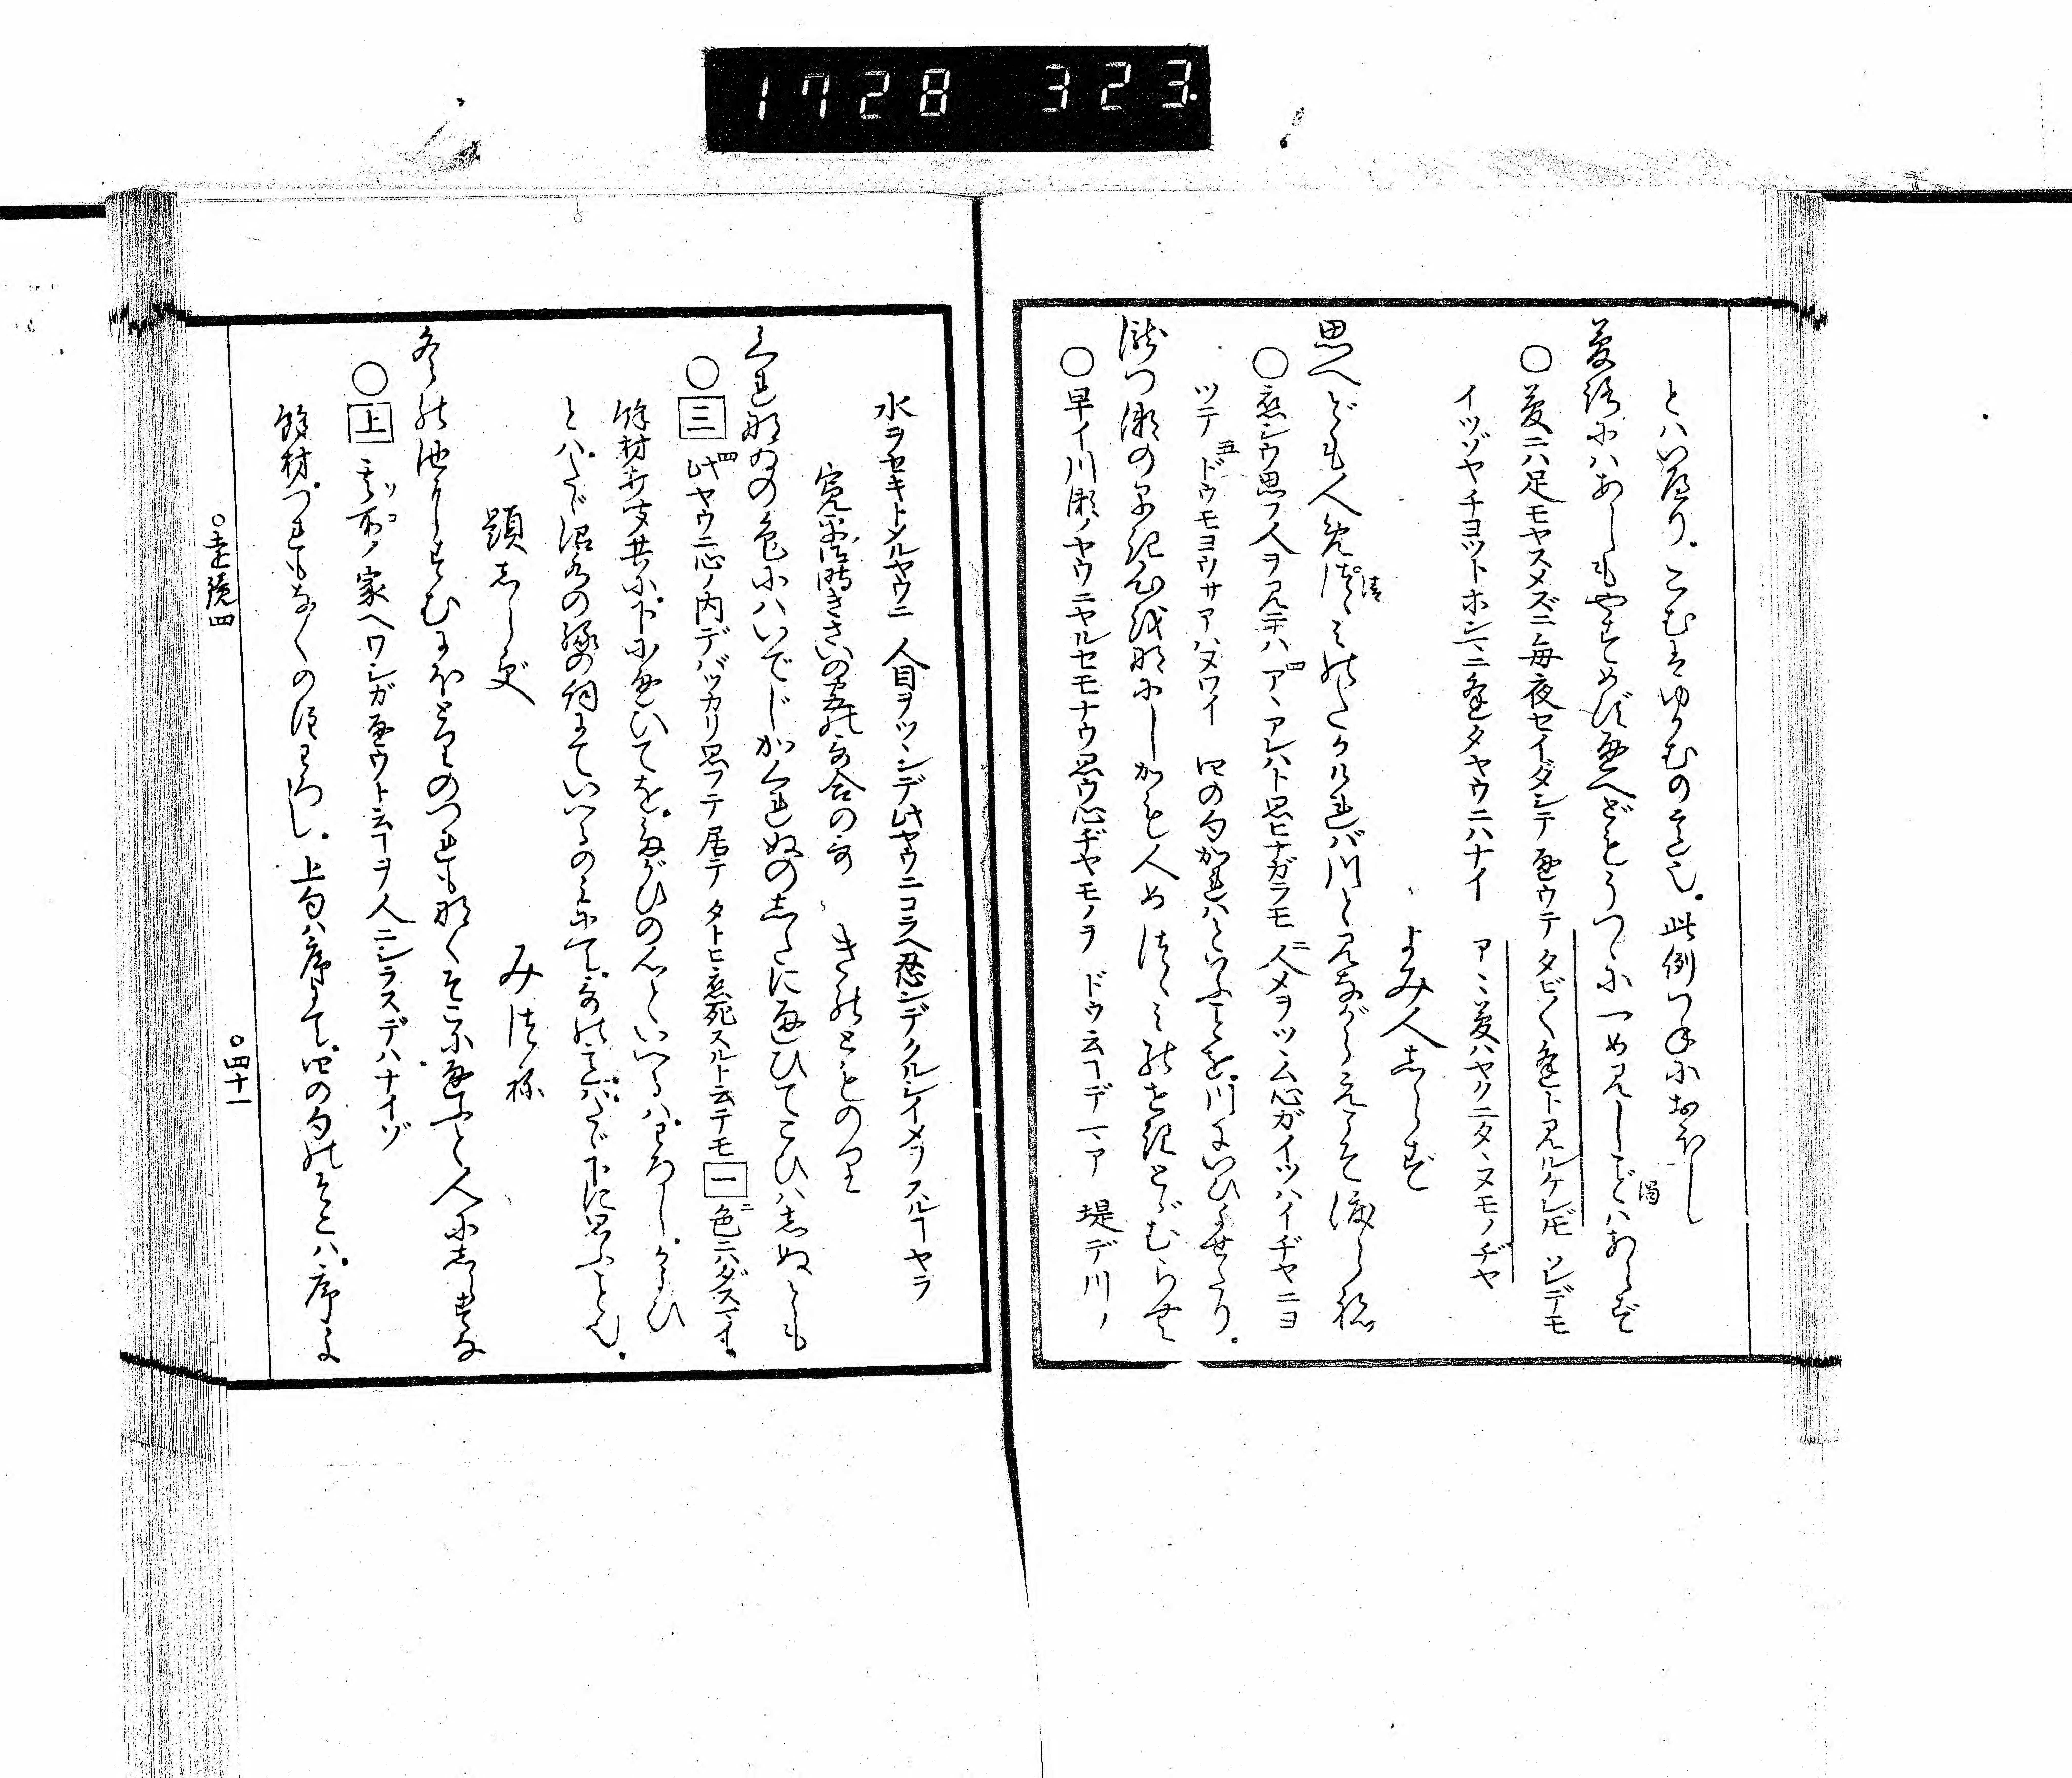 1728 323.
とハいへり。こむはゆかむのこゝろ也。此例つねにおほし
夢路にハあしもやすめず通へどもうつゝに一め見しごとハあらず
○夢ニハ足モヤスメズニ毎夜セイダシテ通ウテ タビ〳〵逢トハ見ルケレドモ ソレデモ
イツゾヤチヨツトホンニ逢タヤウニハナイ アヽ夢ハヤクニタヽヌモノヂヤ
よみ人しらず
思へども人めつゝみのたかければ川と見ながらえこそ渡らね
○恋シウ思フ人ヲ見テハ アヽアレハト思ヒナガラモ 人メヲツヽム心ガイツハイヂヤニヨ
ツテ ドウモヨウサアハヌワイ 四の句かれハといふことを。川にいひよせたり。
瀧つ瀬のはやき心を何しかも人めつゝみのせきとゞむらむ
○早イ川瀬ノヤウニヤルセモナウ思ウ心ヂヤモノヲ ドウ云ヿデマア 堤デ川ノ
水ヲセキトメルヤウニ 人目ヲツヽンデ此ヤウニコラヘ忍ンデクルシイメヲスルヿヤラ
寛平御時きさいの宮の歌合の歌 きのとものり
くれなゐの色にハいでじかくれぬのしたに通ひてこひハしぬとも
○三 此ヤウニ心ノ内デバツカリ思フテ居テ タトヒ恋死スルト云テモ 一 色ニハダスマイ。
餘材打聞共に下に通ひてを。たがひの心といへるハわろし。かよひ
とハたゞ沼水の縁の詞にていへるのみにて。歌の意ハたゞ下に思ふこと也。
題しらず みつね
冬の池にすむにほとりのつれもなくそこに通ふと人にしらすな
○上 其所ノ家ヘワシガ通ウト云ヿヲ人ニシラスデハナイゾ
餘材つれもなくの注わろし。上句ハ序にて。四の句のそこハ。序に
○遠鏡四 ○四十一